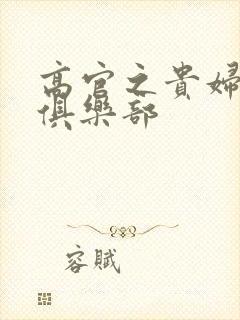 高官之貴婦
俱樂部
容賦